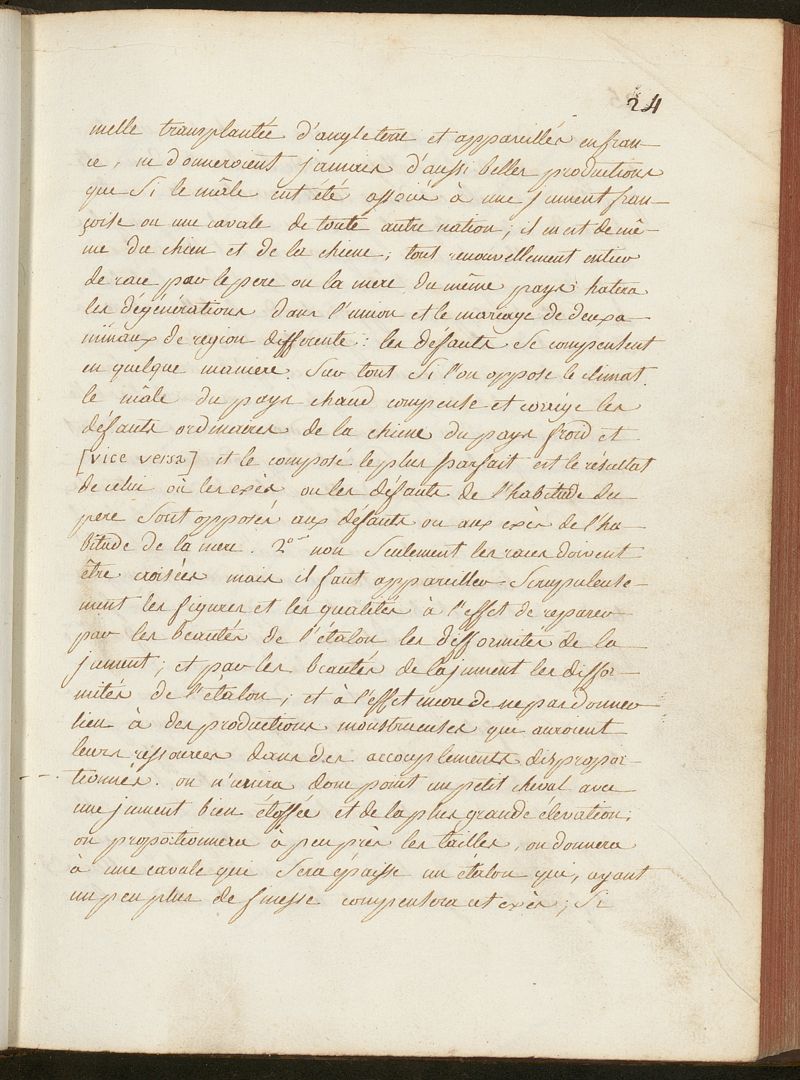 24
melle transplantée d'angleterre et appareillés en fran-
ce, ne donneroient jamais d'aussi belles productions
que si le mâle eut été associé à une jument fran-
çoise ou une cavale de toute autre nation; il en est de mê-
me du chien et de la chiene; tout renouvellement entier
de race par le pere ou la mere du même pays hatera
les dégénérations dans l'union et le mariage de deux a-
nimaux de region differente: les défauts se compensent
en quelque maniere. Sur tout si l'on oppose le climat.
le mâle du pays chaud compense et corrige les
défauts ordinaires de la chiene du pays froid et
[vice versa] et le composé le plus parfait est le résultat
de celui où les exès ou les défauts de l'habitude du
pere sont opposés aux défauts ou aux exès de l'ha-
bitude de la mere. 2° non seulement les races doivent
être croisées mais il faut appareiller scrupuleuse-
ment les figures et les qualités à l'effet de reparer
par les beautés de l'étalon les difformités de la
jument; et par les beautés de la jument les diffor-
mités de l'étalon; et à l'effet encore de ne pas donner
lieu à des productions monstrueuses que auroient
leurs ressources dans des accouplements dispropor-
tionnés. on n'unira donc point un petit cheval avec
une jument bien étoffée et de la plus grande élevation;
on proportionnera à peu près les tailles, on donnera
à une cavale qui sera épaisse un étalon qui, ayant
un peu plus de finesse compensera cet exès; si